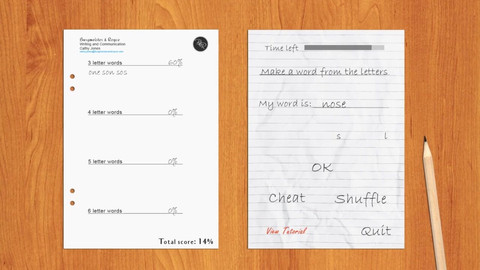 Writing and Communication
Cathy Jones
3 letter words 60%
one son sos
4 letter words 0%
5 letter words 0%
6 letter words 0%
Total score: 14%
Time left
Make a word from the letters
My word is: nose
s l
OK
Cheat Shuffle
View Tutorial Quit